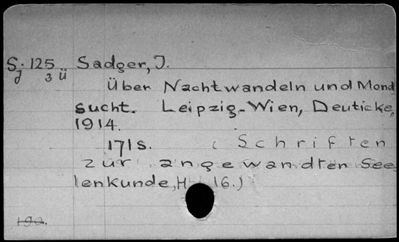 Sj 125 Sadger, J.
3 ü
Über Nachtwandeln und Mond
sucht. Leipzig-Wien, Deuticke,
1914.
171 S. (Schriften
zur angewandten See
lenkunde, H. 16.)